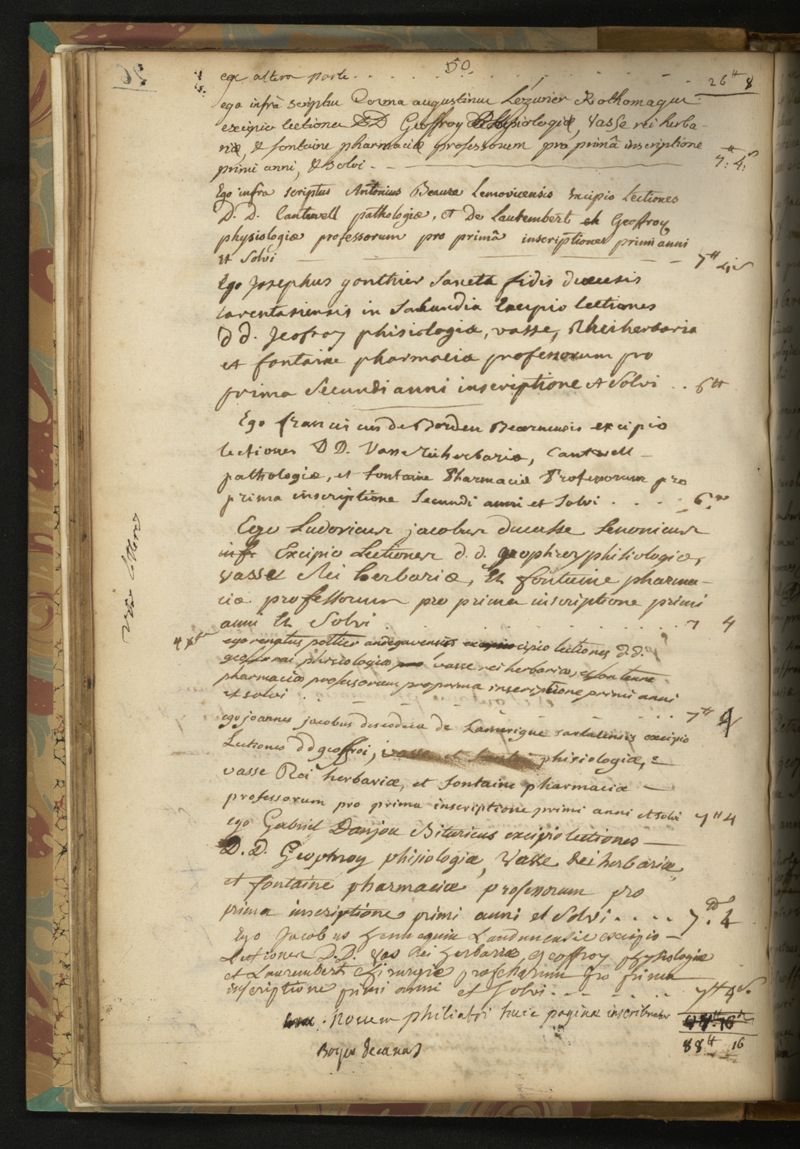 50
ex altera parte . . . . . . . 26# 8
ego infrà scriptus augustinus Lezurier Rothomagus
excipio lectiones DD Geoffroy Physiologiæ, Vasse rei herba-
riæ, & fontaine pharmaciæ professorum pro primâ inscriptione
primi anni, & solvi - 7# 4s
Ego infra scriptus Antonius Beauze Lemovicensis Excipio Lectiones
D. D. Cantwell pathologiæ, et De Laurembert et Geoffroy
physiologiæ professorum pro primâ inscriptiones primi anni
Et Solvi - 7# 4s
Ego Josephus gonthier Sancta fidis diœcesis
tarentasiensis in Sabaudia Excipio lectiones
d d. Jeofroy phisiologiæ, vasse, Rhei herbaria
et fontaine pharmaciæ professorum pro
prima Secundi anni inscriptione et Solvi . . 6#
Ego franciscus de Borden Bearnensis excipio
lectiones D D. Vasse rei herbariæ, Cantwell -
pathologiæ, et fontaine Pharmaciæ Professorum pro
prima inscriptione Secundi anni et Solvi . . . . . 6#
Ego Ludovicus jacobus ducasse
Excipio Lectiones d. d. geophroy phisiologiæ,
vasse Rei herbariæ, Et fontaine pharma-
ciæ professorum pro prima inscriptione primi
anni Et Solvi . . . . . . . . 7 4
ego renatus pottier andegavensis excipio lectiones d.d.
phisiologiæ vasse rei herbariæ, et fontaine
pharmaciæ professorum pro prima inscriptione primi anni
et solvi . . . . . . 7# 4
ego joannes jacobus de Lamerigue sarlatensis excipio
Lectiones d d geoffroi, phisiologiæ,
vasse Rei herbariæ, et fontaine pharmaciæ -
professorum pro prima inscriptione primi anni et solvi 7# 4
ego Gabriel Danjou Bituricus excipio lectiones -
D. D. Geophroy phisiologiæ, Vasse Rei herbariæ,
et fontaine pharmaciæ professorum pro
prima inscriptione primi anni et Solvi . . . . 7# 4
Ego Jacobus hennequin Laudunensis excipio -
Lectiones D. D. Vas Rei herbariæ, geoffroy physiologiæ
et Laurembert chirurgiæ professorum pro prima
inscriptione primi anni et solvi . - . . . . 7# 4s.
novem philiatri huic paginæ inscribuntur
88# 16
Boyer decanus